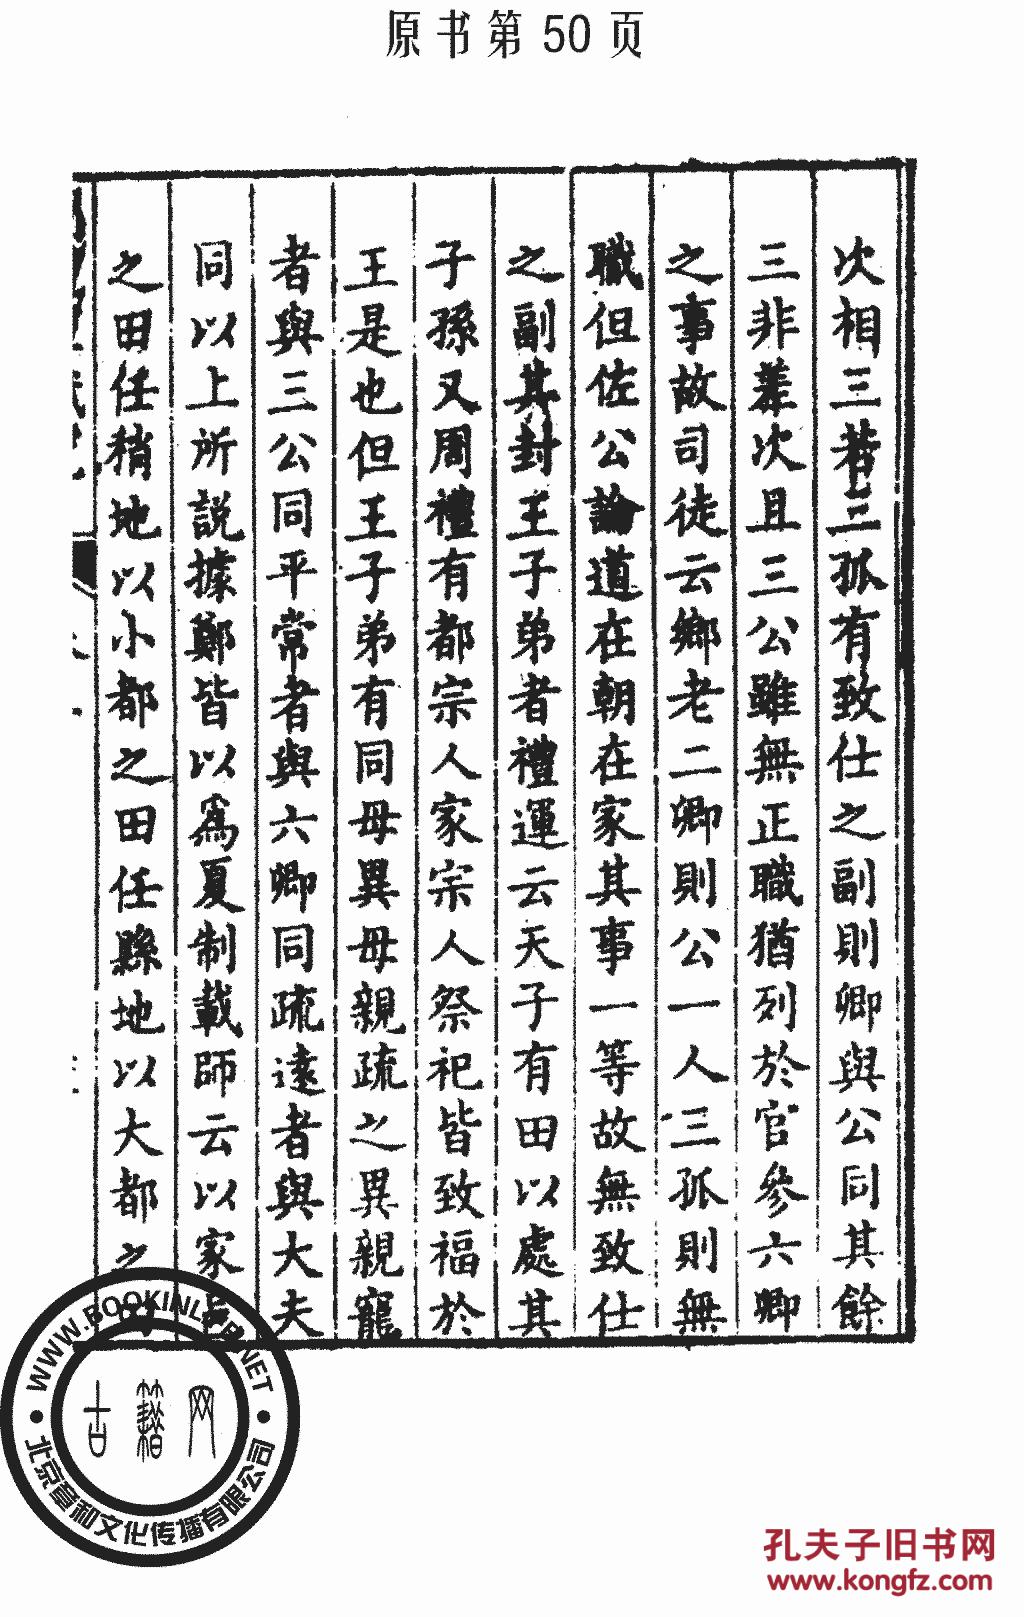 原书第50页
次相三若三孤有致仕之副則卿與公同其餘
三非差次且三公雖無正職猶列於官參六卿
之事故司徒云鄉老二卿則公一人三孤則無
職但佐公論道在朝在家其事一等故無致仕
之副其封王子弟者禮運云天子有田以處其
子孫又周禮有都宗人家宗人祭祀皆致福於
王是也但王子弟有同母異母親疏之異親寵
者與三公同平常者與六卿同疏遠者與大夫
同以上所說據鄭皆以為夏制載師云以家邑
之田任稍地以小都之田任縣地以大都之
WWW.BOOKINLIFE.NET
古籍网
北京章和文化传播有限公司
孔夫子旧书网
www.kongfz.com